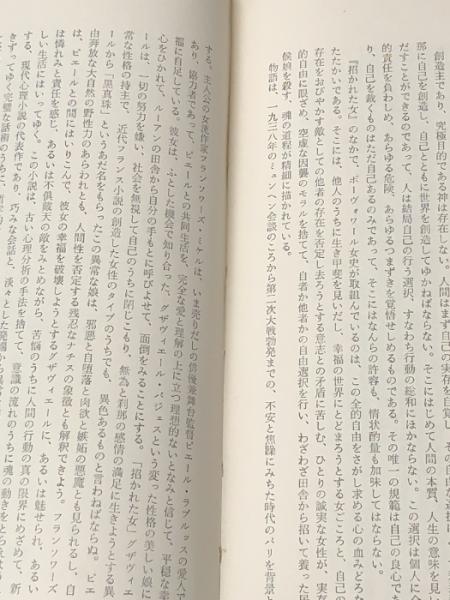 創造主であり、究極目的である神は存在しない。人間はまず自己の実存を自覚し、その自
那に自己を創造し、自己とともに世界を創造してゆかねばならない。そこにはじめて人間の本質、人生の意味を見い
だすことができるのであって、人は結局自己の行う選択、すなわち行動の総和にほかならない。この選択は個人に
的責任を負わしめ、あらゆる危険、あらゆるつまずきを覚悟せしめるものである。その唯一の規範は自己の良心で
り、自己を裁くものはただ自己あるのみであって、そこにはなんの許容も、情状酌量も加味してはならない。
『招かれた女』のなかで、ボーヴォワル女史が取組んでいるのは、この全的自由をさがし求める心の血みどろ
たたかいである。そこには、他人のうちに生き甲斐を見いだし、幸福の世界にとどまろうとする女ごころと、自己の
存在をおびやかす敵としての他者の存在を否定し去ろうとする意志との矛盾に苦しむ、ひとりの誠実な女性が、実存
的自由に眼ざめ、空虚な因襲のモラルを捨てて、自者か他者かの自由選択を行い、わざわざ田舎から招いて養った居
候娘を殺す、魂の道程が精細に描かれている。
物語は、一九三八年のミュンヘン会談のころから第二次大戦勃発までの、不安と焦躁にみちた時代のパリを背景と
する。主人公の女流作家フランソワーズ・ミケルは、いま売りだしの俳優兼舞台監督ピエール・ラブルッスの愛人で
あり、協力者であって、ピエールとの共同生活を、完全な愛と理解の上に立つ理想的ないとなみと信じて、平穏な幸
福に自足している。彼女は、ふとした機会で知り合った、グザヴィエール・パジェスという変った性格の美しい娘に
心をひかれて、ルーアンの田舎から自分の手もとに呼びよせて、面倒をみることにする。「招かれた女」グザヴィエ
ールは、一切の努力を嫌い、社会を無視して自己のうちに閉じこもり、無為と刹那の感情の満足に生きようとする異
常な性格の持主で、近代フランス小説の創造した女性のタイプのうちでも、異色あるものと言わねばならぬ。ピエ
ールから「黒真珠」というあだ名をもらったこの異常な娘は、邪悪と自堕落と肉欲と嫉妬の悪魔とも見られるし、自
由奔放な大自然の野生力のあらわれとも、人間性を否定する残忍なナチスの象徴とも解釈できよう。フランソワーズ
は、ピエールとの間にはいりこんで、彼女の幸福を破壊しようとするグザヴィエールに、あるいは魅せられ、あるい
は憐れみと責任を感じ、あるいは不倶戴天の敵をみとめながら、苦悩のうちに人間の行動の真の限界にめざめて、新
しい生活にはいってゆく。この小説は、古い心理分析の手法を捨てて、意識の流れのうちに魂の動きをとらえ
する、現代心理小説の代表作であり、巧みな会話と、淡々とした
きずってゆく完璧な話術のうちに